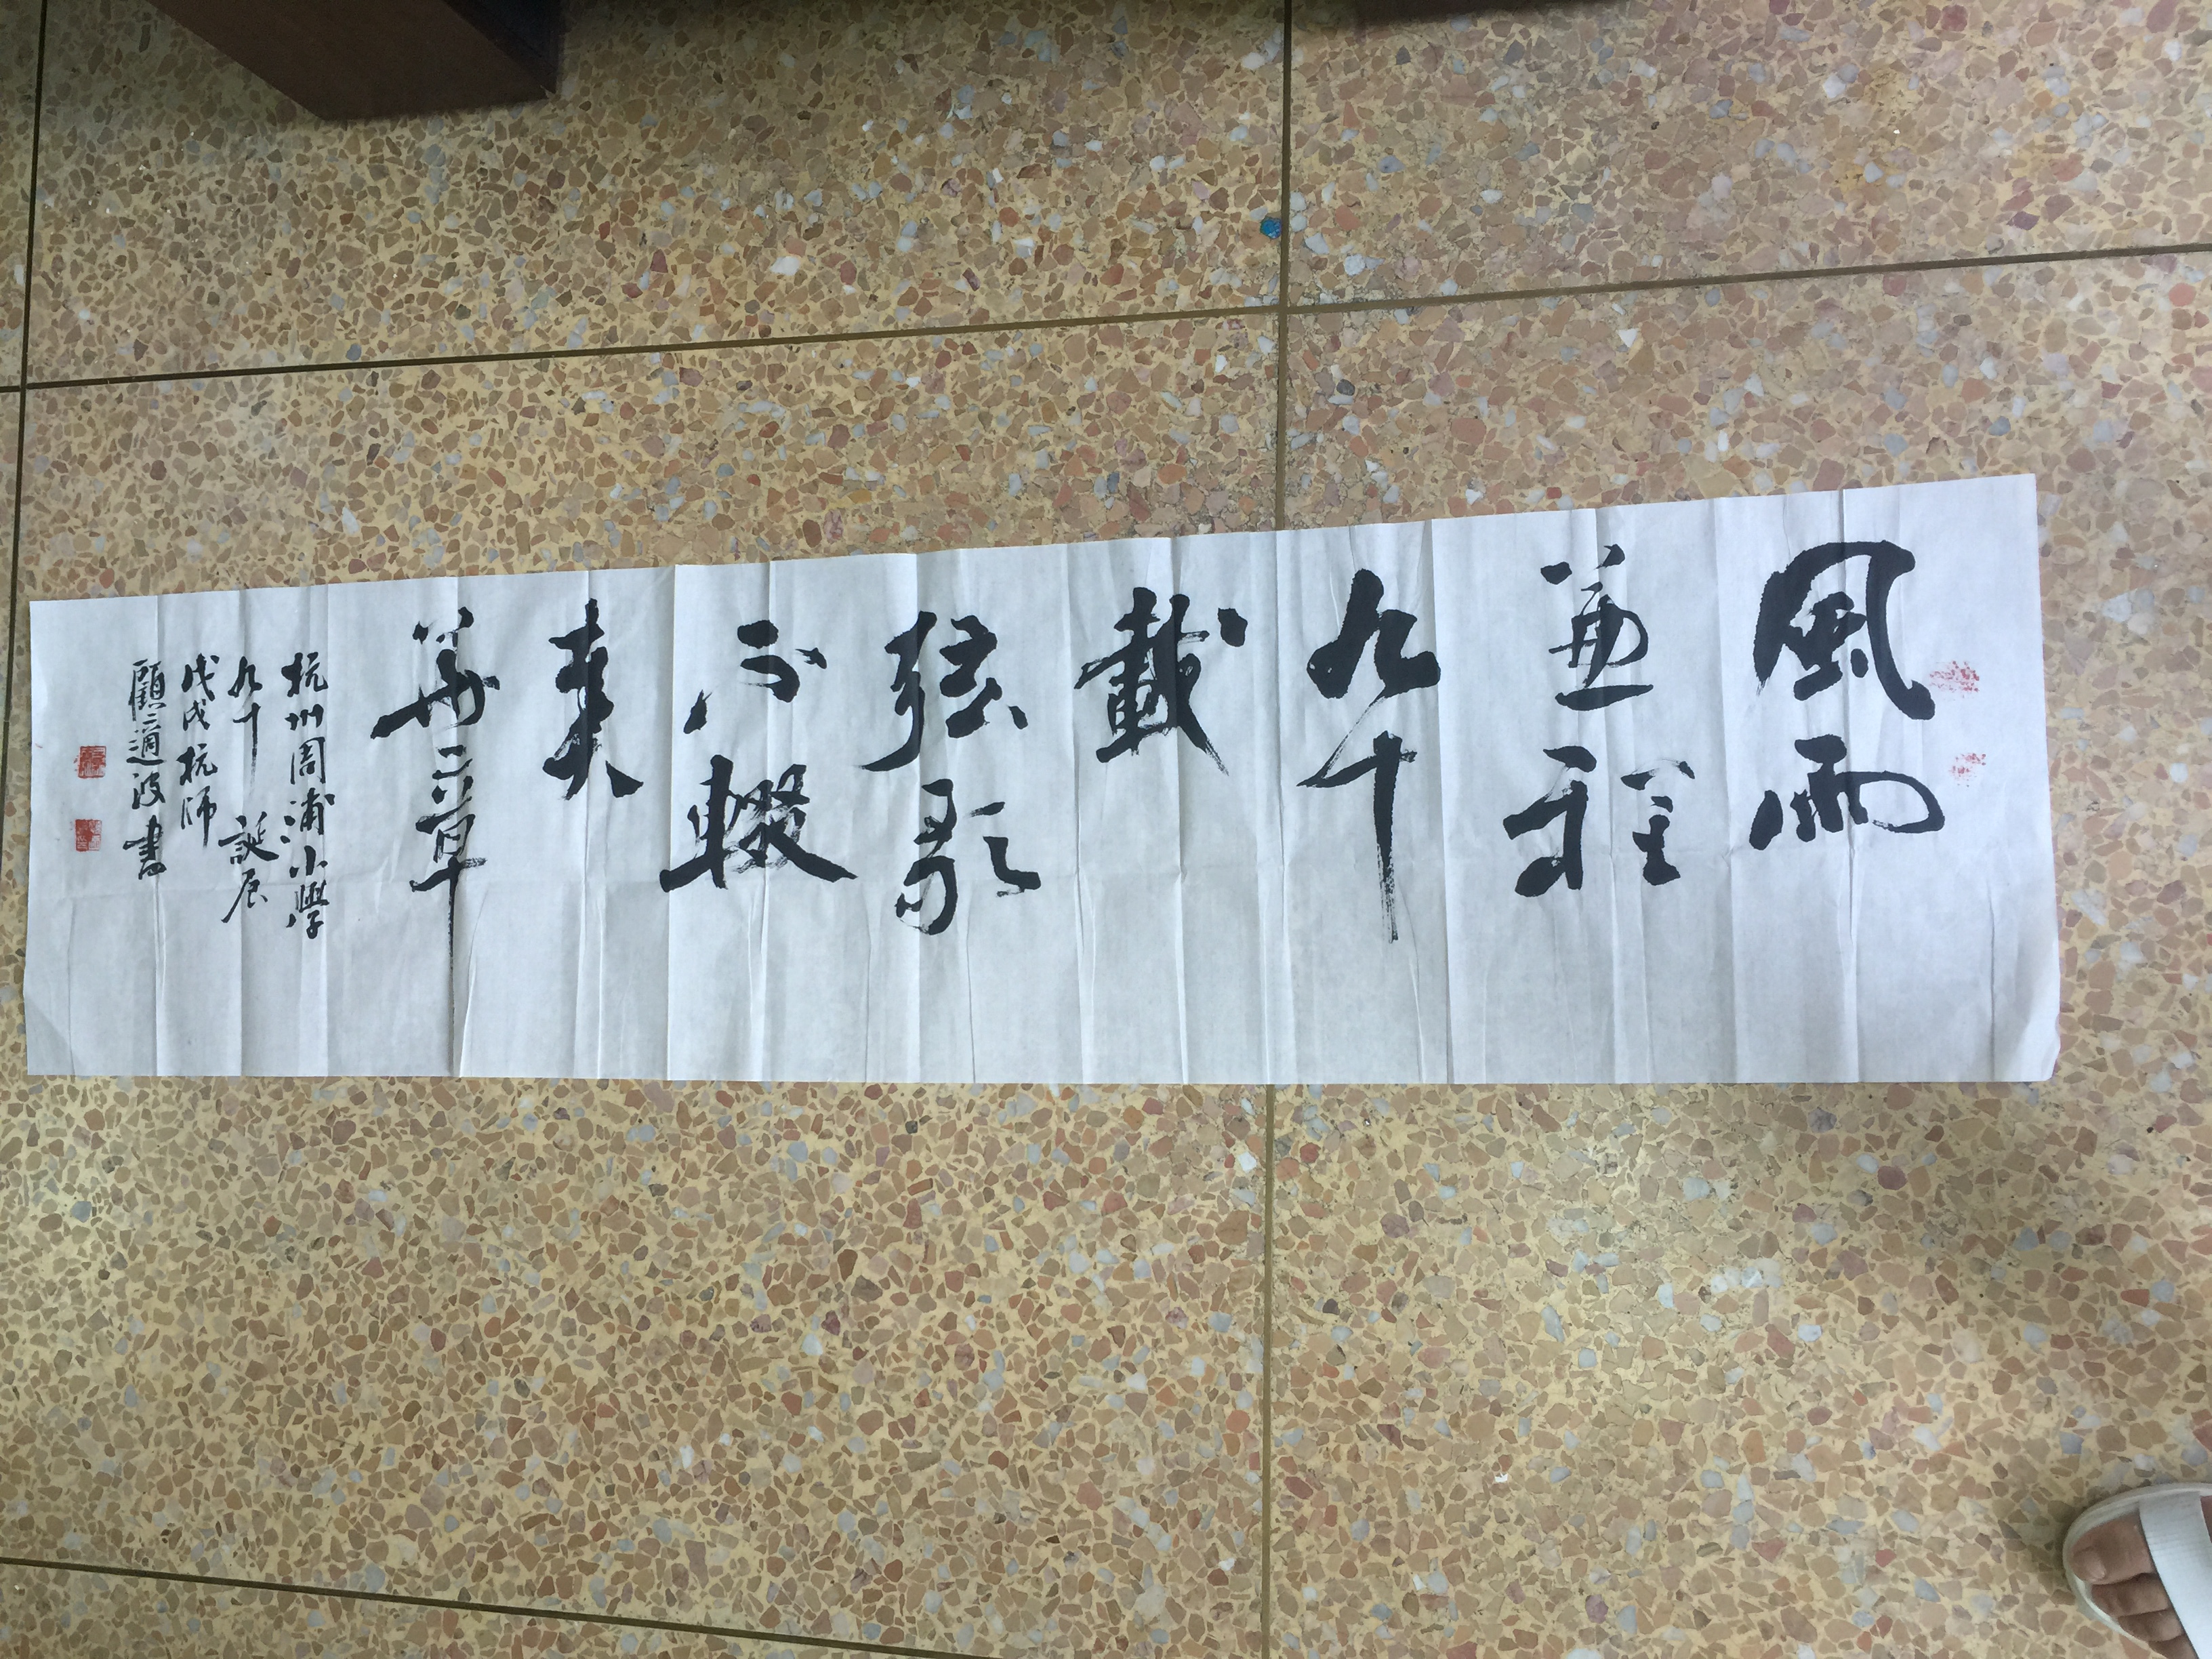 風雨
兼程
九十
載
弦歌
不輟
奏
華章
杭州周浦小學
九十誕辰
戊戌杭師
顧適波書